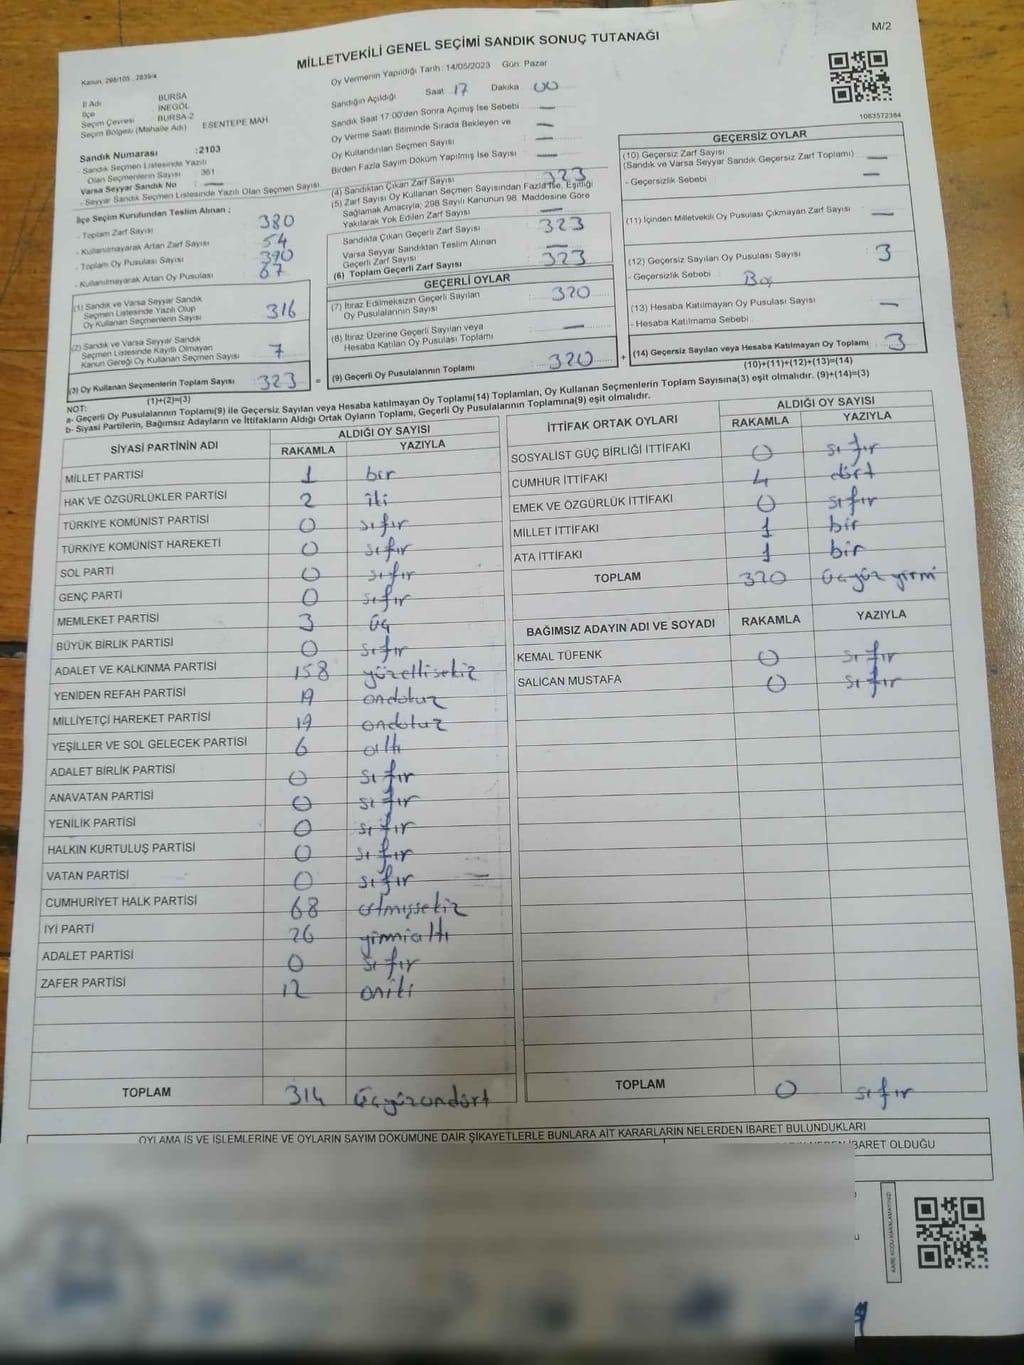 M/2
MİLLETVEKİLİ GENEL SEÇİMİ SANDIK SONUÇ TUTANAĞI
Kanun, 298/105 , 2839/4
Oy Vermenin Yapıldığı Tarih : 14/05/2023 Gün: Pazar
İl Adı : BURSA
İlçe : İNEGÖL
Seçim Çevresi : BURSA-2
Seçim Bölgesi (Mahalle Adı) : ESENTEPE MAH
Sandık Numarası :2103
- Sandık Seçmen Listesinde Yazılı
Olan Seçmenlerin Sayısı : 361
Varsa Seyyar Sandık No : —
- Seyyar Sandık Seçmen Listesinde Yazılı Olan Seçmen Sayısı
İlçe Seçim Kurulundan Teslim Alınan ;
- Toplam Zarf Sayısı : 380
- Kullanılmayarak Artan Zarf Sayısı : 54
- Toplam Oy Pusulası Sayısı : 390
- Kullanılmayarak Artan Oy Pusulası : 67
(1) Sandık ve Varsa Seyyar Sandık
Seçmen Listesinde Yazılı Olup
Oy Kullanan Seçmenlerin Sayısı : 316
(2) Sandık ve Varsa Seyyar Sandık
Seçmen Listesinde Kayıtlı Olmayan
Kanun Gereği Oy Kullanan Seçmen Sayısı : 7
(3) Oy Kullanan Seçmenlerin Toplam Sayısı : 323
(1)+(2)=(3)
Sandığın Açıldığı Saat : 17 Dakika : 00
Sandık Saat 17.00'den Sonra Açımış İse Sebebi : —
Oy Verme Saati Bitiminde Sırada Bekleyen ve
Oy Kullandırılan Seçmen Sayısı : —
Birden Fazla Sayım Döküm Yapılmış İse Sayısı : —
(4) Sandıktan Çıkan Zarf Sayısı : 323
(5) Zarf Sayısı Oy Kullanan Seçmen Sayısından Fazla İse, Eşitliği
Sağlamak Amacıyla; 298 Sayılı Kanunun 98. Maddesine Göre
Yakılarak Yok Edilen Zarf Sayısı : —
Sandıkta Çıkan Geçerli Zarf Sayısı : 323
Varsa Seyyar Sandıktan Teslim Alınan
Geçerli Zarf Sayısı : —
(6) Toplam Geçerli Zarf Sayısı : 323
GEÇERLİ OYLAR
(7) İtiraz Edilmeksizin Geçerli Sayılan
Oy Pusulalarının Sayısı : 320
(8) İtiraz Üzerine Geçerli Sayılan veya
Hesaba Katılan Oy Pusulası Toplamı : —
= (9) Geçerli Oy Pusulalarının Toplamı : 320 +
1083572384
GEÇERSİZ OYLAR
(10) Geçersiz Zarf Sayısı
(Sandık ve Varsa Seyyar Sandık Geçersiz Zarf Toplamı) : —
- Geçersizlik Sebebi : —
(11) İçinden Milletvekili Oy Pusulası Çıkmayan Zarf Sayısı : —
(12) Geçersiz Sayılan Oy Pusulası Sayısı : 3
- Geçersizlik Sebebi : Boş
(13) Hesaba Katılmayan Oy Pusulası Sayısı : —
- Hesaba Katılmama Sebebi :
(14) Geçersiz Sayılan veya Hesaba Katılmayan Oy Toplamı : 3
(10)+(11)+(12)+(13)=(14)
NOT:
a- Geçerli Oy Pusulalarının Toplamı(9) ile Geçersiz Sayılan veya Hesaba katılmayan Oy Toplamı(14) Toplamları, Oy Kullanan Seçmenlerin Toplam Sayısına(3) eşit olmalıdır. (9)+(14)=(3)
b- Siyasi Partilerin, Bağımsız Adayların ve İttifakların Aldığı Ortak Oyların Toplamı, Geçerli Oy Pusulalarının Toplamına(9) eşit olmalıdır.
SİYASİ PARTİNİN ADI ALDIĞI OY SAYISI
RAKAMLA YAZIYLA
MİLLET PARTİSİ 1 bir
HAK VE ÖZGÜRLÜKLER PARTİSİ 2 iki
TÜRKİYE KOMÜNİST PARTİSİ 0 sıfır
TÜRKİYE KOMÜNİST HAREKETİ 0 sıfır
SOL PARTİ 0 sıfır
GENÇ PARTİ 0 sıfır
MEMLEKET PARTİSİ 3 üç
BÜYÜK BİRLİK PARTİSİ 0 sıfır
ADALET VE KALKINMA PARTİSİ 158 yüzellisekiz
YENİDEN REFAH PARTİSİ 19 ondokuz
MİLLİYETÇİ HAREKET PARTİSİ 19 ondokuz
YEŞİLLER VE SOL GELECEK PARTİSİ 6 altı
ADALET BİRLİK PARTİSİ 0 sıfır
ANAVATAN PARTİSİ 0 sıfır
YENİLİK PARTİSİ 0 sıfır
HALKIN KURTULUŞ PARTİSİ 0 sıfır
VATAN PARTİSİ 0 sıfır
CUMHURİYET HALK PARTİSİ 68 altmışsekiz
İYİ PARTİ 26 yirmialtı
ADALET PARTİSİ 0 sıfır
ZAFER PARTİSİ 12 oniki
TOPLAM 314 üçyüzondört
İTTİFAK ORTAK OYLARI ALDIĞI OY SAYISI
RAKAMLA YAZIYLA
SOSYALİST GÜÇ BİRLİĞİ İTTİFAKI 0 sıfır
CUMHUR İTTİFAKI 4 dört
EMEK VE ÖZGÜRLÜK İTTİFAKI 0 sıfır
MİLLET İTTİFAKI 1 bir
ATA İTTİFAKI 1 bir
TOPLAM 320 üçyüzyirmi
BAĞIMSIZ ADAYIN ADI VE SOYADI RAKAMLA YAZIYLA
KEMAL TÜFENK 0 sıfır
SALİCAN MUSTAFA 0 sıfır
TOPLAM 0 sıfır
OYLAMA İŞ VE İŞLEMLERİNE VE OYLARIN SAYIM DÖKÜMÜNE DAİR ŞİKAYETLERLE BUNLARA AİT KARARLARIN NELERDEN İBARET BULUNDUKLARI
İBARET OLDUĞU
KARE KODU KARALAMAYINIZ!